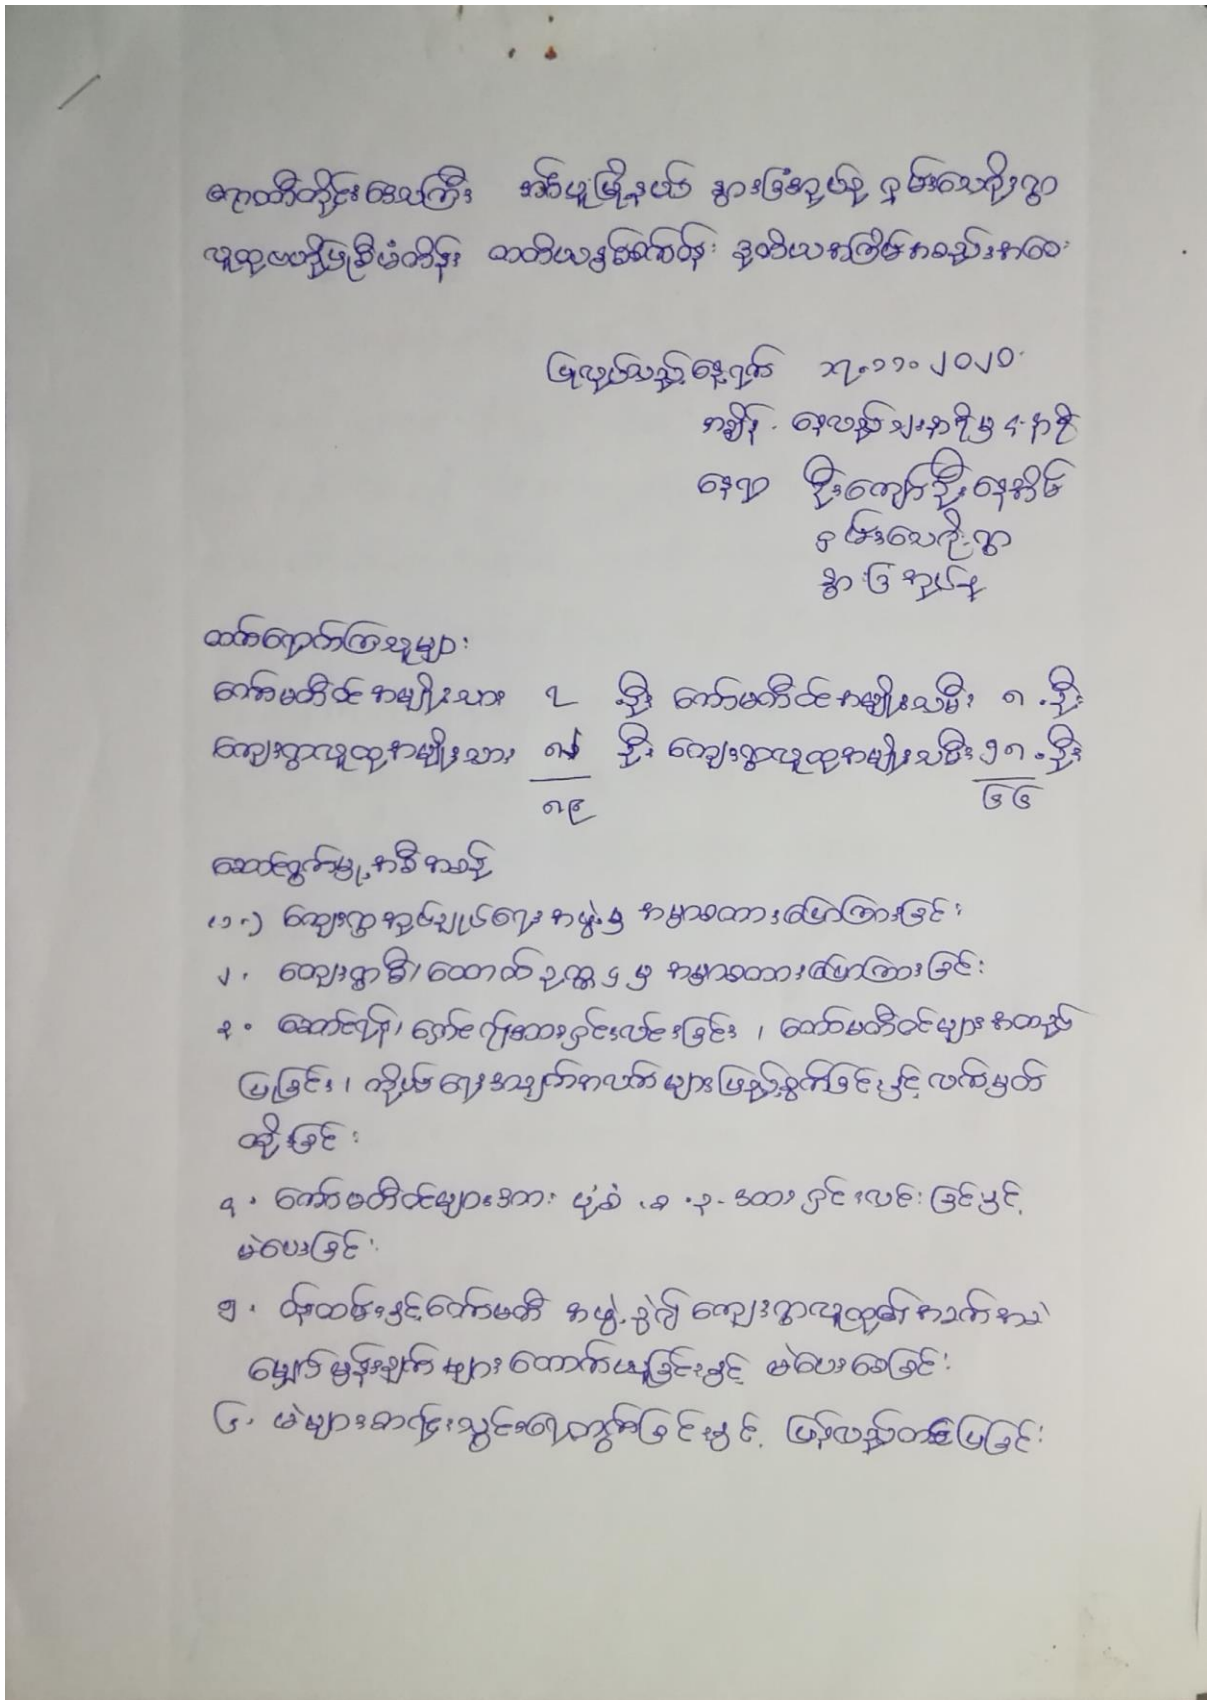 ဧရာဝတီတိုင်းဒေသကြီး အင်္ဂပူမြို့နယ် နွားခြံအုပ်စု ရှမ်းသေဂိုဏ်းရွာ
လူထုဗဟိုပြုစီမံကိန်း တတိယနှစ်စက်ဝန်း ဒုတိယအကြိမ်အစည်းအဝေး
ပြုလုပ်သည့်နေ့ရက် ၁၇.၁၁.၂၀၂၀
အချိန် - နေ့လည် ၁၂ နာရီမှ ၄ နာရီ
နေရာ ဦးကျော်ဦးနေအိမ်
ရွာ
အုပ်စု
တက်ရောက်ကြသူများ
ကော်မတီဝင်အမျိုးသား ၇ ဦး ကော်မတီဝင်အမျိုးသမီး ၈ ဦး
ကျေးရွာလူထုအမျိုးသား ဦး ကျေးရွာလူထုအမျိုးသမီး ၅၈ ဦး
၆၆
ဆောင်ရွက်မှုအစီအစဉ်
(၁) ကျေးရွာအုပ်ချုပ်ရေးအဖွဲ့မှ အမှာစကားပြောကြားခြင်း
၂. ကျေးရွာစီ/ထောက်ဥက္ကဌမှ အမှာစကားပြောကြားခြင်း
၃. ရှင်းလင်းခြင်း၊ ကော်မတီဝင်များအတည်
ပြုခြင်း၊ ကိုယ်ရေးအချက်အလက်များဖြည့်စွက်ခြင်းနှင့် လက်မှတ်
ထိုးခြင်း
၄. ကော်မတီဝင်များအား ပုံစံ စ-၃ အားရှင်းလင်းခြင်းနှင့်
မဲပေးခြင်း
၅. ဝန်ထမ်းနှင့်ကော်မတီ အဖွဲ့ခွဲ၍ ကျေးရွာလူထု၏အခက်အခဲ
မျှော်မှန်းချက်များကောက်ယူခြင်းနှင့် မဲပေးစေခြင်း
၆. မဲများစာရင်းသွင်းရေတွက်ခြင်းနှင့် ပြန်လည်တင်ပြခြင်း